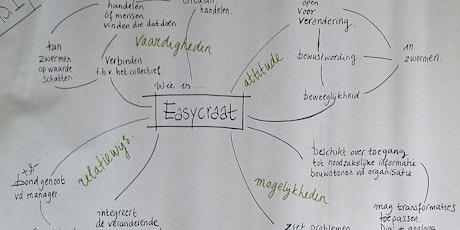 handelen
óf mensen
vinden die dat doen
handelen.
kan
zwermen
op waarde
schatten
vaardigheden
Verbinden
t.b.v. het collectief
open
voor
verandering.
bewustwording.
in
zwermen.
attitude
beweeglijkheid
Wee is ....
Easycraat
relatiewijs.
bondgenoot
vd manager.
integreert
de veranderende
mogelijkheden
Beschikt over toegang
tot noodzakelijke informatie
bouwstenen vd organisatie
mag transformaties
toepassen.
Ziet problemen